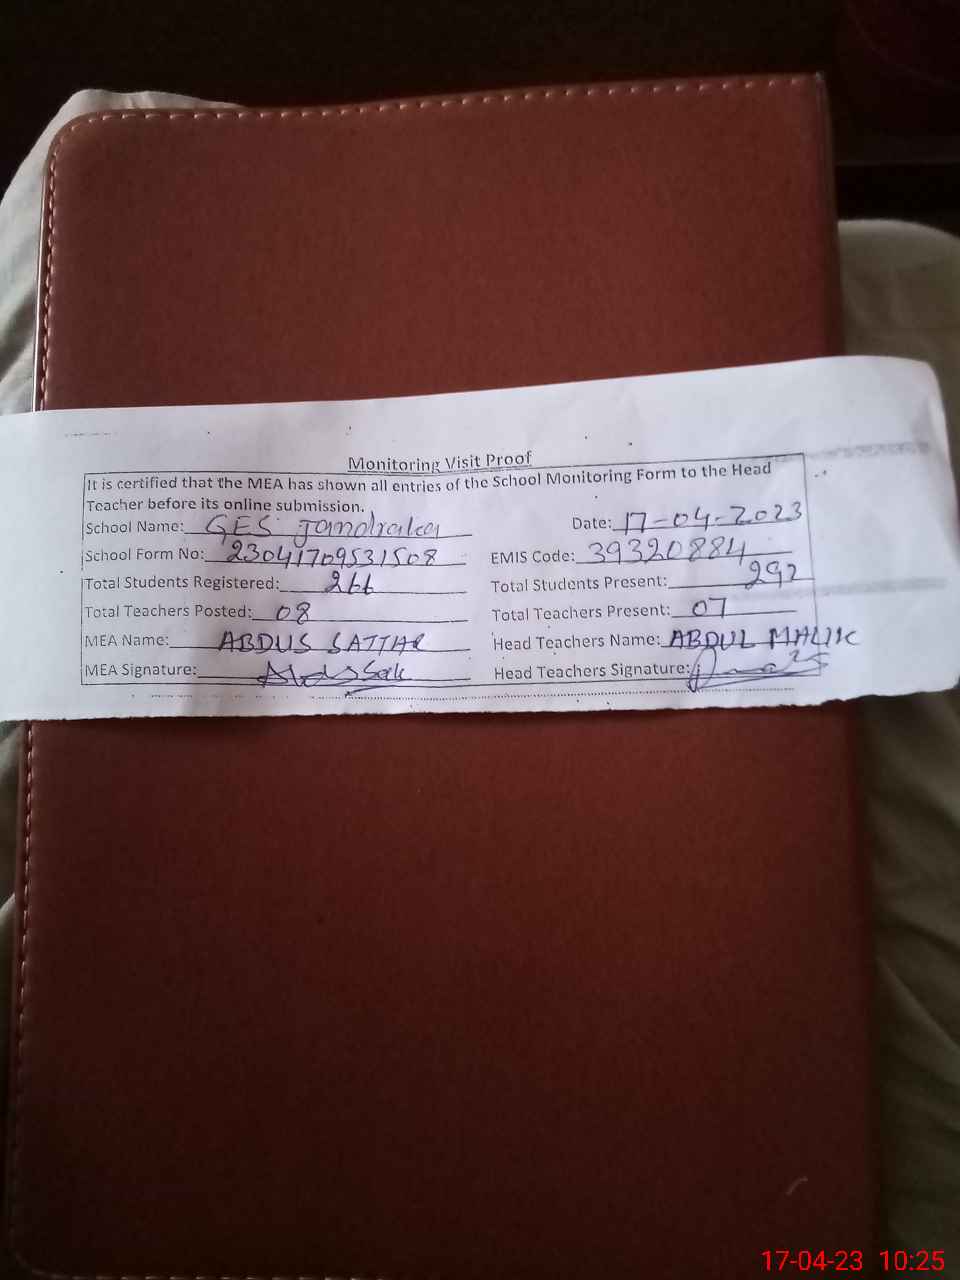 Monitoring Visit Proof
It is certified that the MEA has shown all entries of the School Monitoring Form to the Head
Teacher before its online submission.
School Name: GES Jandraka Date: 17-04-2023
School Form No: 23041709531508 EMIS Code: 39320884
Total Students Registered: 266 Total Students Present: 292
Total Teachers Posted: 08 Total Teachers Present: 07
MEA Name: ABDUS SATTAR Head Teachers Name: ABDUL MALIK
MEA Signature: Head Teachers Signature:
17-04-23 10:25